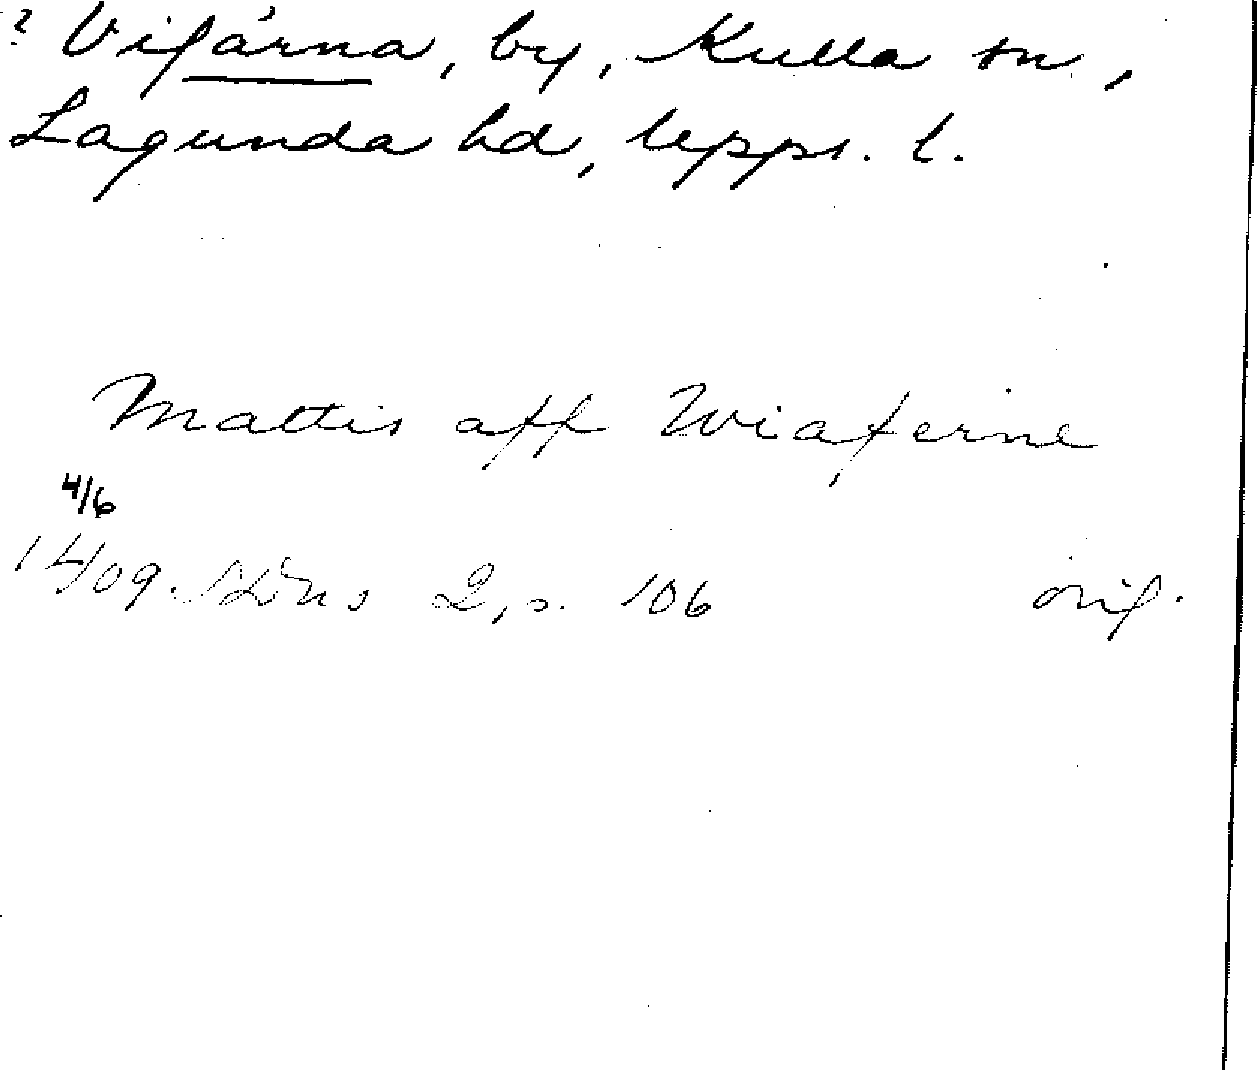 ? Vifärna, by, Kulla sn,
Lagunda hd, Upps. l.
Mattis aff Wiaferne
4/6
1409. SDns 2, s. 106 orig.